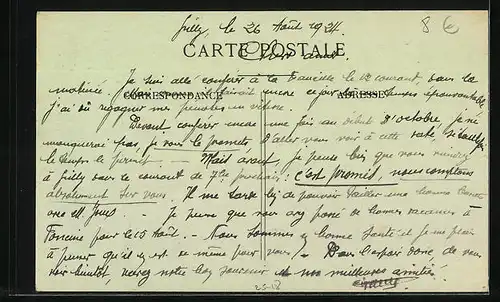 le 26 Août 1924.
8 €
CARTE POSTALE
Chers amis
Je suis allé conférer à la Faucille le 12 courant, dans la
matinée. encore
CORRESPONDANCE
ADRESSE
j'ai dû regagner mes pénates en vitesse.
Devant conférer encore une fois au début d'octobre, je ne
manquerai pas, je vous le promets, d'aller vous voir à cette date si
le temps le permet. — Mais avant, je pense que vous viendrez
à dans le courant de 7bre prochain: c'est promis, nous comptons
absolument sur vous. Il me tarde de pouvoir tailler une bonne
avec M. — Je pense que vous avez passé de bonnes vacances à
Foncine pour le 15 Août. — Nous sommes en bonne santé et je me plais
à penser qu'il en est de même pour vous. — Dans l'espoir donc, de vous
voir bientôt, recevez notre bon souvenir et nos meilleures amitiés.
25-18